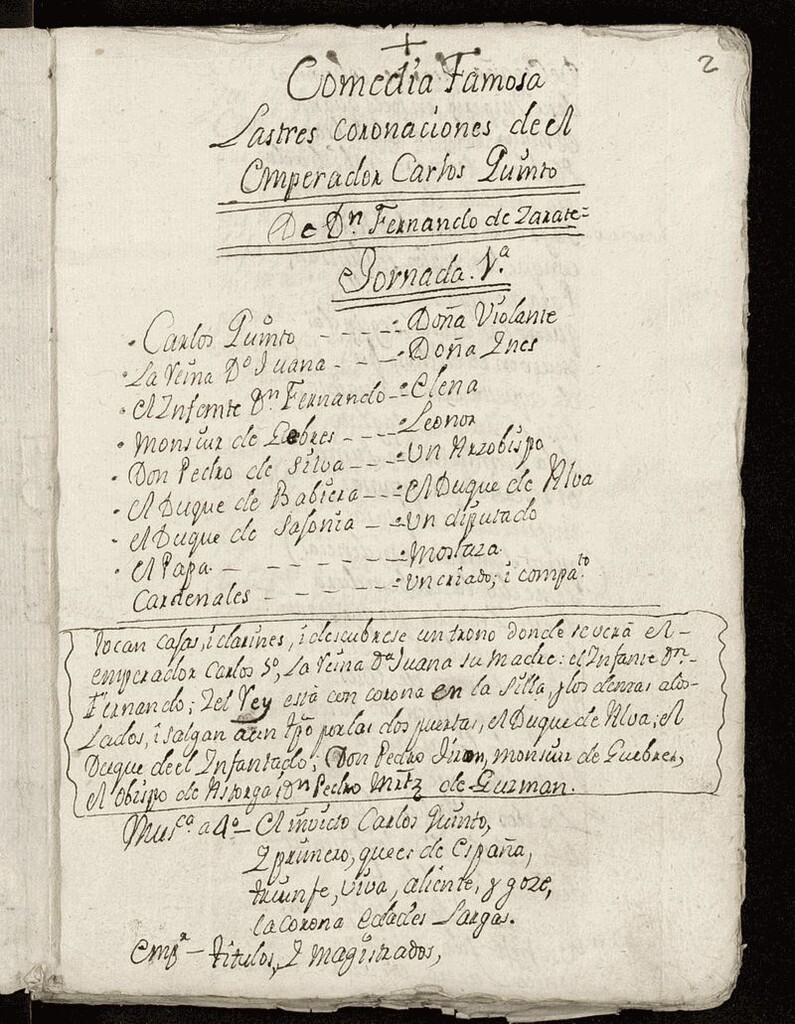 2
+
Comedia Famosa
Las tres coronaciones de el
Emperador Carlos Quinto
De Dn. Fernando de Zarate=
Jornada. 1.ª
Carlos Quinto - - - - Doña Violante
La Reina Dª Juana - - - Doña Ines
el Infante Dn. Fernando - Elena
Monsiur de Gebres - - - - Leonor
Don Pedro de Silva - - - Un Arzobispo
el Duque de Babiera - - - el Duque de Alva
el Duque de Sajonia - - Un diputado
el Papa - - - - - - - Mostaza
Cardenales - - - - - Un criado, i compa.to
Tocan cajas, i clarines, i descubrese un trono donde se verá el-
emperador Carlos 5º, La Reina Dª Juana su Madre: el Infante Dn.-
Fernando; I el Rey está con corona en la silla, y los demas a los-
Lados, i salgan a un tpo por las dos puertas, el Duque de Alva; el
Duque de el Infantado; Don Pedro Jiron, monsiur de Guebres,
el obispo de Astorga, i Dn Pedro Mrtz de Guzman.
Mus.ca a 4º- El invicto Carlos Quinto,
I primero, que es de España,
triunfe, viva, aliente, y goze,
la corona edades Largas.
Emp.r - titulos, I magistrados,